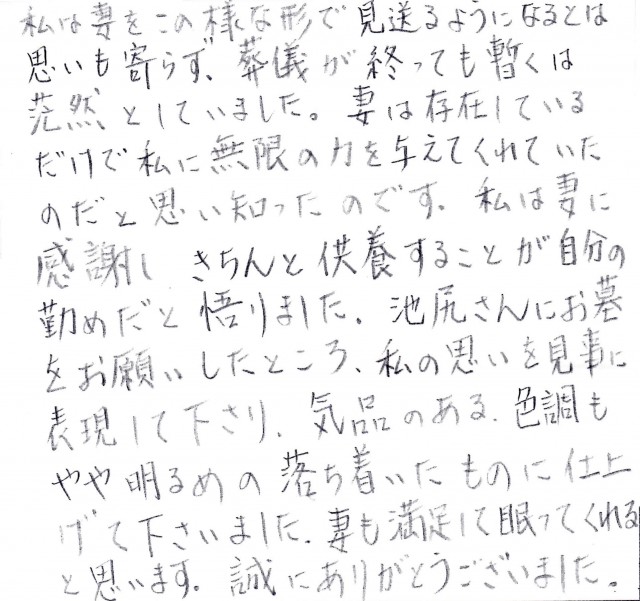 私は妻をこの様な形で見送るようになるとは
思いも寄らず、葬儀が終っても暫くは
茫然としていました。妻は存在している
だけで私に無限の力を与えてくれていた
のだと思い知ったのです。私は妻に
感謝し きちんと供養することが自分の
勤めだと悟りました。池尻さんにお墓
をお願いしたところ、私の思いを見事に
表現して下さり、気品のある、色調も
やや明るめの落ち着いたものに仕上
げて下さいました。妻も満足して眠ってくれる
と思います。誠にありがとうございました。